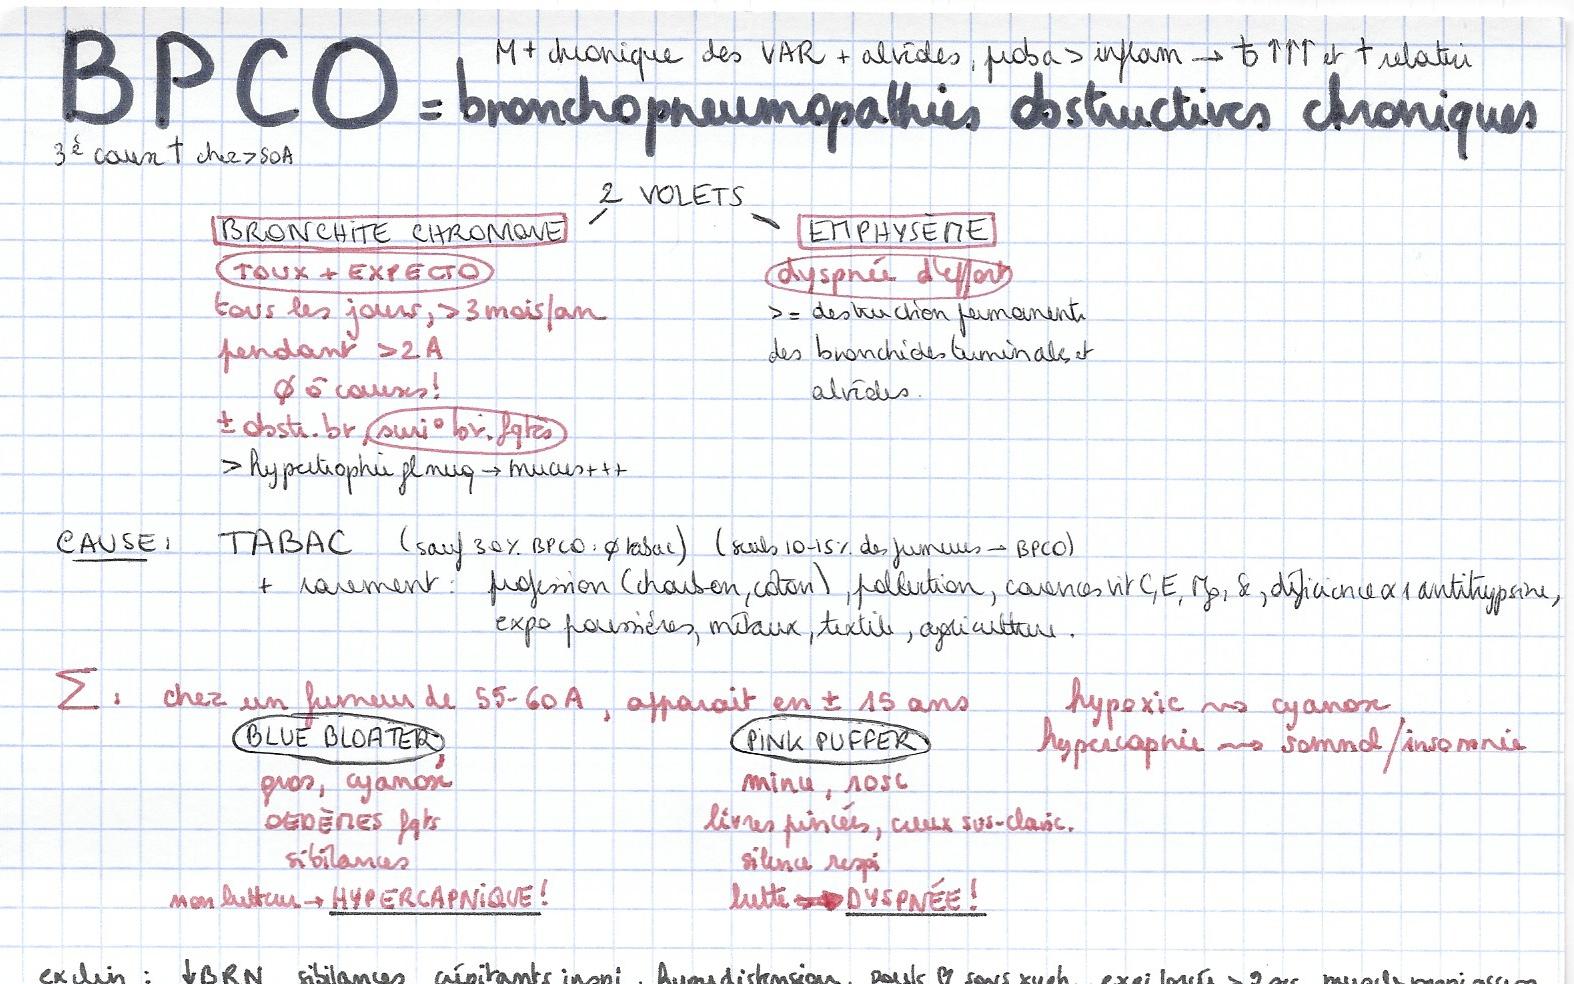 BPCO = bronchopneumopathies obstructives chroniques
M+ chronique des VAR + alvéoles, proba > inflam → ↑↑↑ et † relative
3è cause † chez >50A
2 VOLETS
BRONCHITE CHRONIQUE
TOUX + EXPECTO
tous les jours, >3 mois/an
pendant >2A
Ø ō causes!
± obstr. br, suri° br. fqtes
> hypertrophie gl muq → mucus+++
EMPHYSÈME
dyspnée d'effort
>= destruction permanente
des bronchioles terminales et
alvéoles.
CAUSE: TABAC (sauf 30% BPCO: Ø tabac) (seuls 10-15% des fumeurs → BPCO)
+ rarement: profession (charbon, coton), pollution, carences vit C, E, Mg, Se, déficience α1 antitrypsine,
expo poussières, métaux, textile, agriculture.
Σ: chez un fumeur de 55-60A, apparait en ± 15 ans
hypoxie ~> cyanose
hypercapnie ~> somnol/insomnie
BLUE BLOATER
gros, cyanosé
OEDÈMES fqts
sibilances
non lutteur → HYPERCAPNIQUE!
PINK PUFFER
mince, rose
lèvres pincées, creux sus-clavic.
silence respi
lutte → DYSPNÉE!
ex clin: ↓BRN sibilances crépitants inspi,